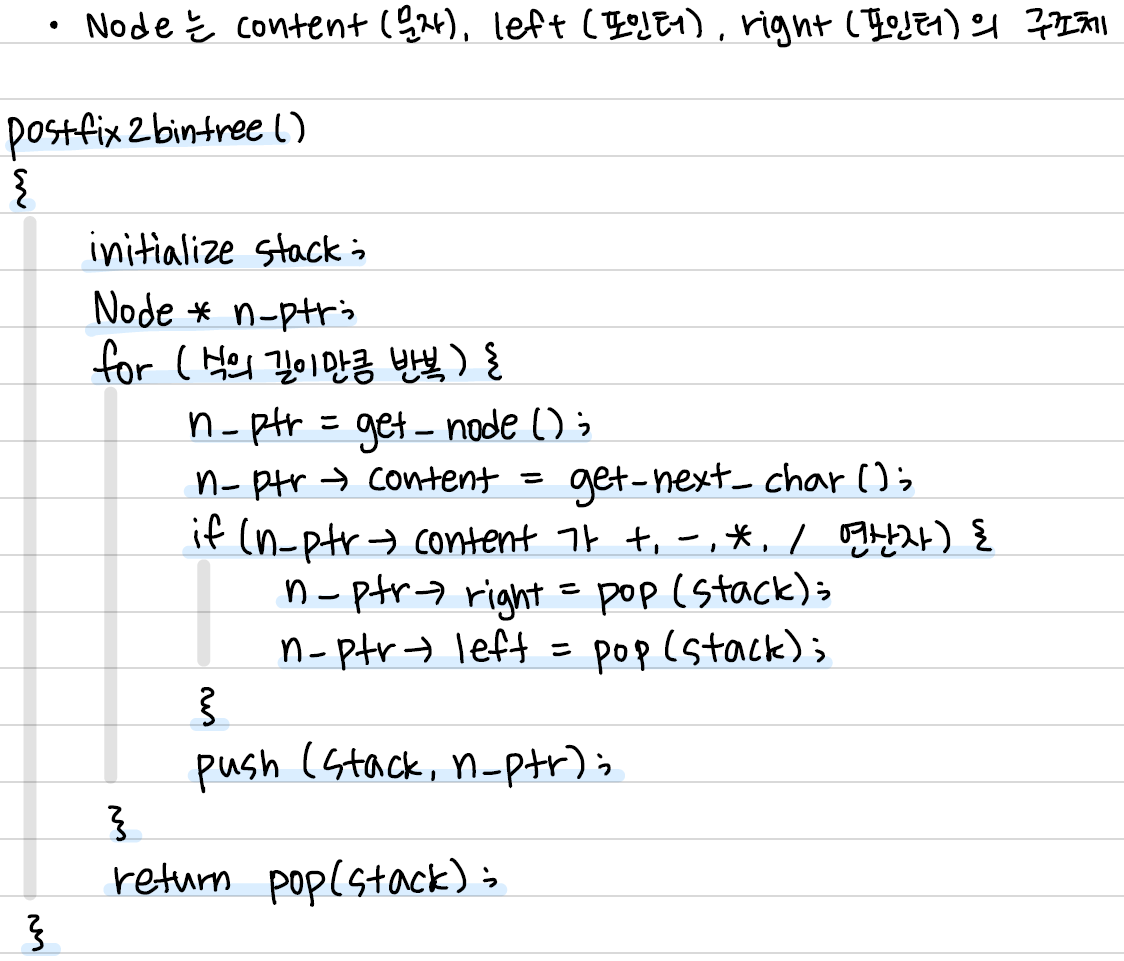 • Node는 content (문자), left (포인터), right (포인터)의 구조체
postfix2bintree()
{
initialize stack;
Node * n_ptr;
for (식의 길이만큼 반복) {
n_ptr = get_node();
n_ptr → content = get_next_char();
if (n_ptr → content 가 +, -, *, / 연산자) {
n_ptr → right = pop (stack);
n_ptr → left = pop (stack);
}
push (stack, n_ptr);
}
return pop(stack);
}